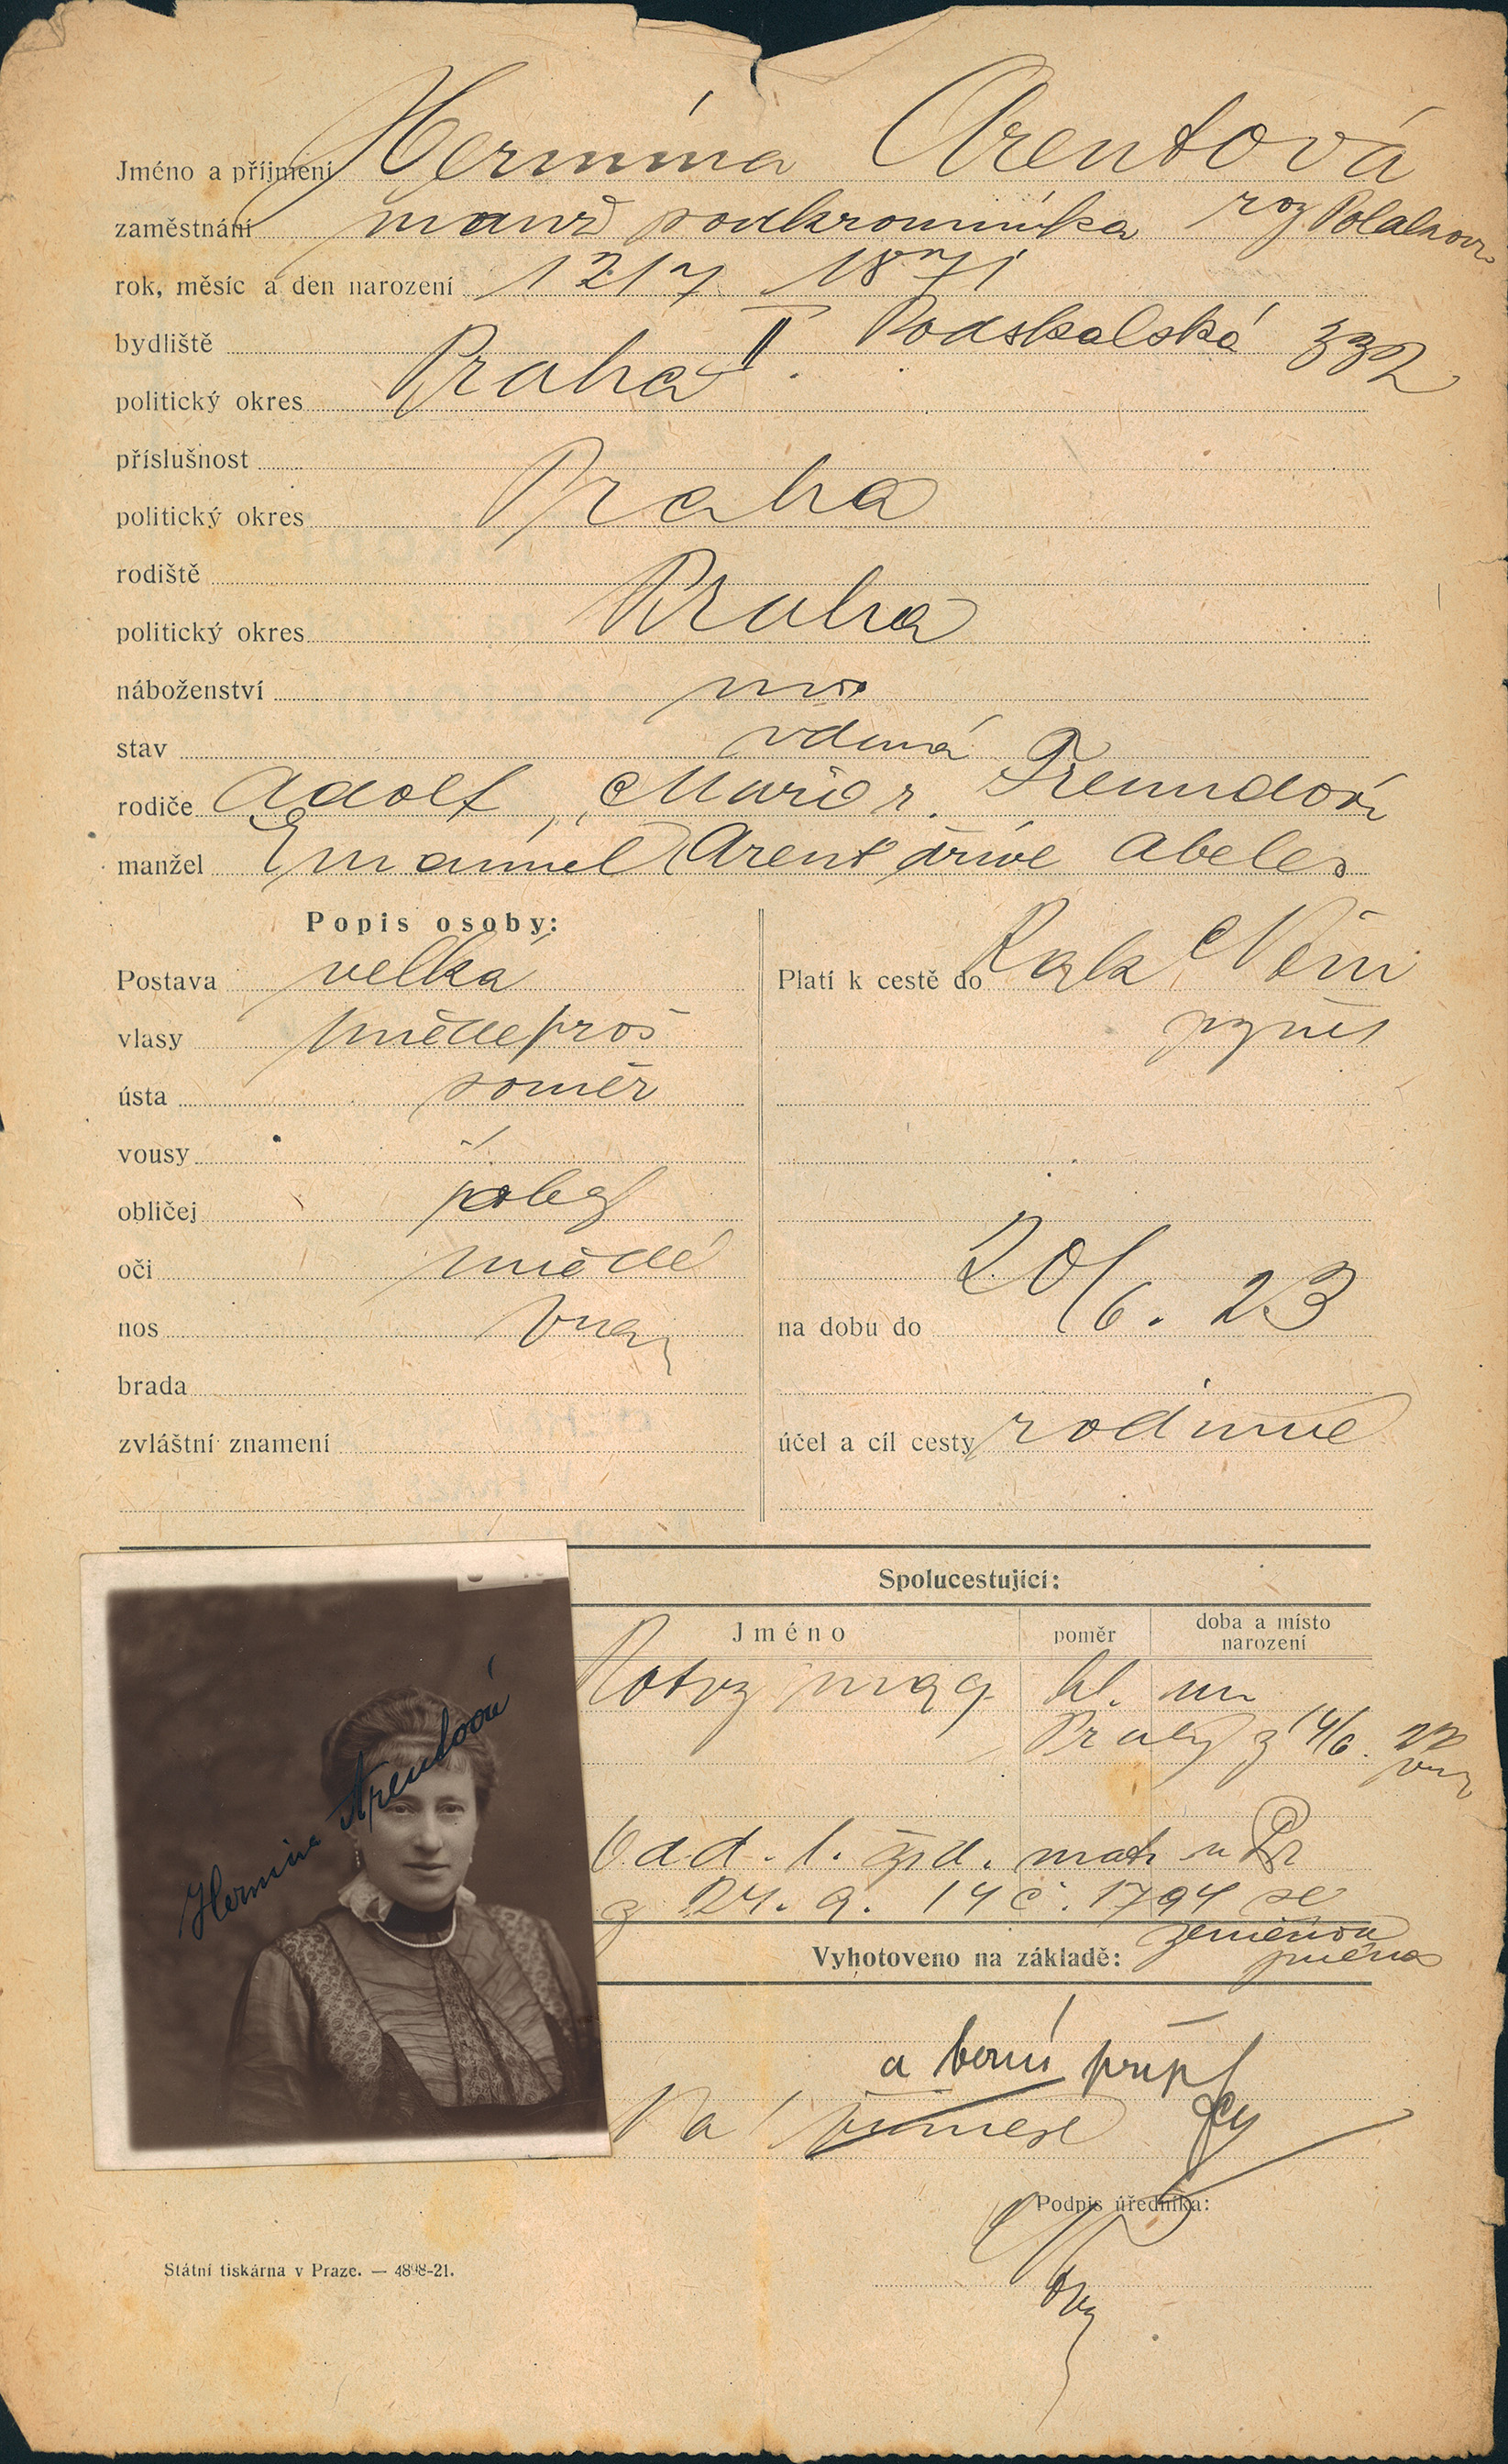 Jméno a příjmení Hermína Arentová
zaměstnání manž soukromníka roz Polakov
rok, měsíc a den narození 12/7 1871
bydliště Praha II Podskalská 332
politický okres
příslušnost
politický okres Praha
rodiště
politický okres Praha
náboženství
stav vdaná
rodiče Adolf, Marie r. Freundová
manžel Emanuel Arent dříve Abeles
Popis osoby:
Postava velká
vlasy hnědé proš
ústa soměr
vousy
obličej
oči hnědé
nos
brada
zvláštní znamení
Platí k cestě do Rak Něm
na dobu do 20/6. 23
účel a cíl cesty rodinné
Hermína Arentová
Spolucestující:
Jméno poměr doba a místo narození
hl. m
Prahy z 14/6. 22
Odd. l. zn. mats v Pr
z 24. 9. 14 č. 1794 se
změnou
jména
Vyhotoveno na základě:
a berní příp
Na
Podpis úředníka:
Státní tiskárna v Praze. — 4898-21.